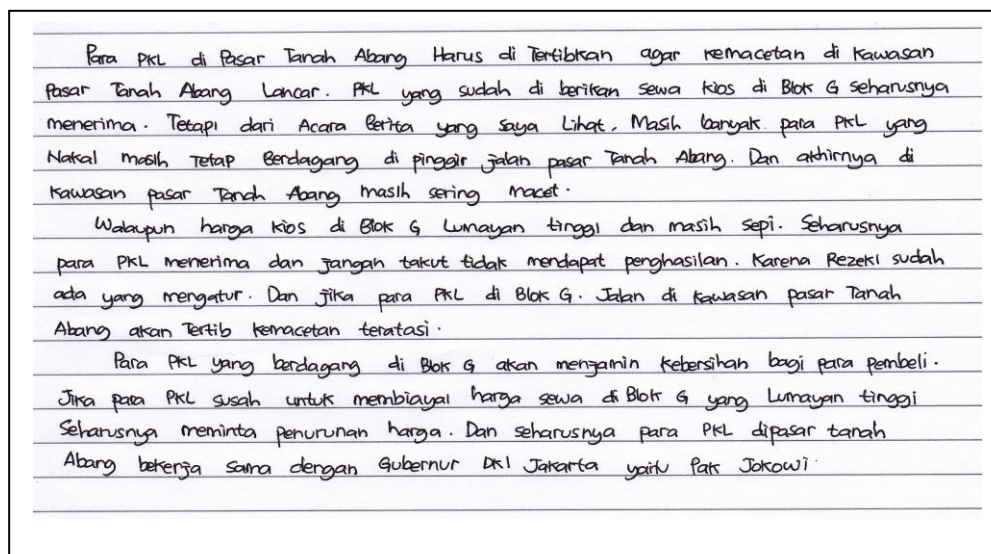 Para PKL di Pasar Tanah Abang Harus di Tertibkan agar kemacetan di Kawasan
Pasar Tanah Abang Lancar. PKL yang sudah di berikan sewa kios di Blok G seharusnya
menerima. Tetapi dari Acara Berita yang saya Lihat. Masih banyak para PKL yang
Nakal masih Tetap Berdagang di pinggir jalan pasar Tanah Abang. Dan akhirnya di
Kawasan pasar Tanah Abang masih sering macet.
Walaupun harga kios di Blok G Lumayan tinggi dan masih sepi. Seharusnya
para PKL menerima dan jangan takut tidak mendapat penghasilan. Karena Rezeki sudah
ada yang mengatur. Dan jika para PKL di Blok G. Jalan di kawasan pasar Tanah
Abang akan Tertib kemacetan teratasi.
Para PKL yang berdagang di Blok G akan menjamin Kebersihan bagi para pembeli.
Jika para PKL susah untuk membiayai harga sewa di Blok G yang Lumayan tinggi
Seharusnya meminta penurunan harga. Dan seharusnya para PKL dipasar tanah
Abang bekerja sama dengan Gubernur DKI Jakarta yaitu Pak Jokowi.